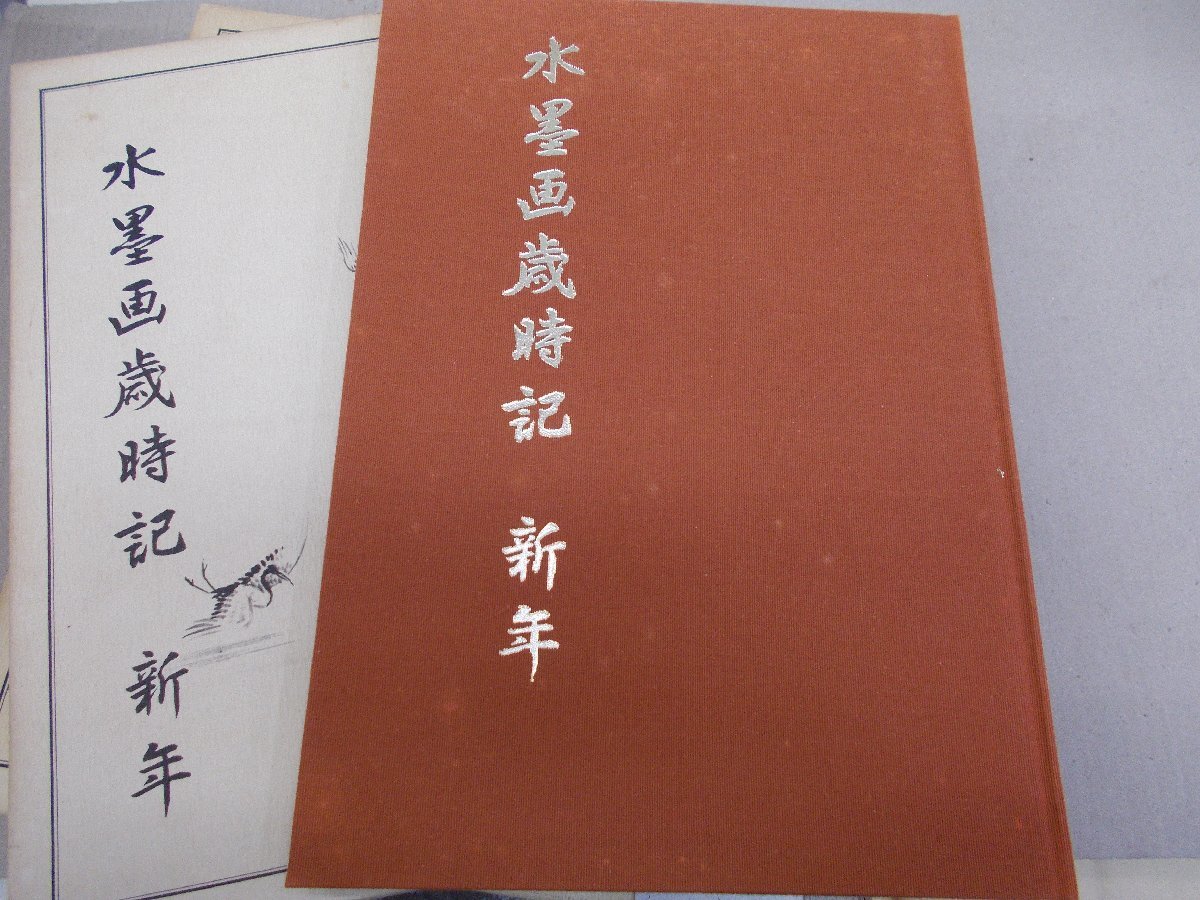 水墨画歳時記 新年
水墨画歳時記 新年